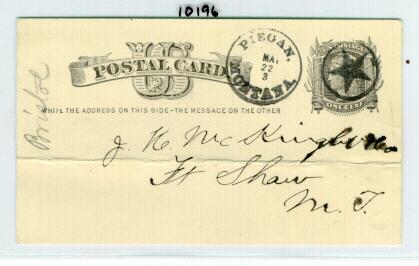 10196
U.S. POSTAGE
POSTAL CARD
PIEGAN,
MAY
22
3
MONTANA.
ONE CENT
WRITE THE ADDRESS ON THIS SIDE-THE MESSAGE ON THE OTHER
Bristol
J. H. McKnight & Co
Ft Shaw
M. T.